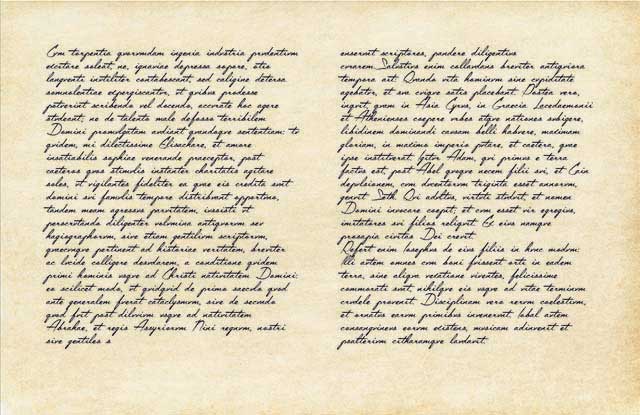 Cvm torpentia qvorvmdam ingenia indvstria prvdentivm
excitare soleat, ne, ignaviae depressa sopore, otio
langventi invtiliter contabescant, sed caligine detersa
somnolentiae expergiscantvr, et qvibvs prodesse
potverint scribendo vel docendo, accvrate hoc agere
stvdeant; ne de talento male defosso terribilem
Domini promvlgatam avdiant qvandoqve sententiam: tv
qvidem, mi dilectissime Elisachare, et amore
insatiabilis sophiae venerande praeceptor, post
caeteros qvos stimvlis instanter charitatis agitare
soles, vt vigilantes fideliter ea qvae eis credita svnt
domini svi famvlis tempore distribvant opportvno,
tandem meam agressvs parvitatem, ivssisti vt
perscrvtando diligenter volvmina antiqvorvm sev
hagiographorvm, sive etiam gentilivm scriptorvm,
qvaecvmqve pertinent ad historiae veritatem, breviter
ac lvcide colligere desvdarem, a conditione qvidem
primi hominis vsqve ad Christi nativitatem Domini:
ea scilicet modo, vt qvidqvid de primo saecvlo qvod
ante generalem fverat cataclysmvm, sive de secvndo
qvod fvit post dilvvivm vsqve ad nativitatem
Abrahae, et regis Assyriorvm Nini regnvm, nostri
sive gentiles s
enservnt scriptores, pandere diligentivs
cvrarem. Salvstivs enim collavdans breviter antiqviora
tempora ait: Qvando vita hominvm sine cvpiditate
agebatvr, et sva cviqve satis placebant. Postea vero,
inqvit, qvam in Asia Cyrvs, in Graecia Lecedaemonii
et Athenienses coepere vrbes atqve nationes svbigere,
libidinem dominandi cavsam belli habvere, maximam
gloriam, in maximo imperio pvtare, et caetera, qvae
ipse institverat. Igitvr Adam, qvi primvs e terra
factvs est, post Abel qvoqve necem filii svi, et Cain
depvlsionem, cvm dvcentorvm triginta esset annorvm,
genvit Seth. Qvi advltvs, virtvti stvdvit, et nomen
Domini invocare coepit, et cvm esset vir egregivs,
imitatores svi filios reliqvit. Et eivs namqve
prosapia civitas Dei crevit.
Refert enim Iosephvs de eivs filiis in hvnc modvm:
Illi avtem omnes cvm boni fvissent orti, in eadem
terra, sine aliqva vexatione viventes, felicissime
commorati svnt, nihilqve eis vsqve ad vitae terminvm
crvdele provenit. Disciplinam vero rervm coelestivm,
et ornatvs earvm primibvs invenervnt. Iobal avtem
consangvinevs eorvm existens, mvsicam adinvenit et
psalterivm citharamqve lavdavit.